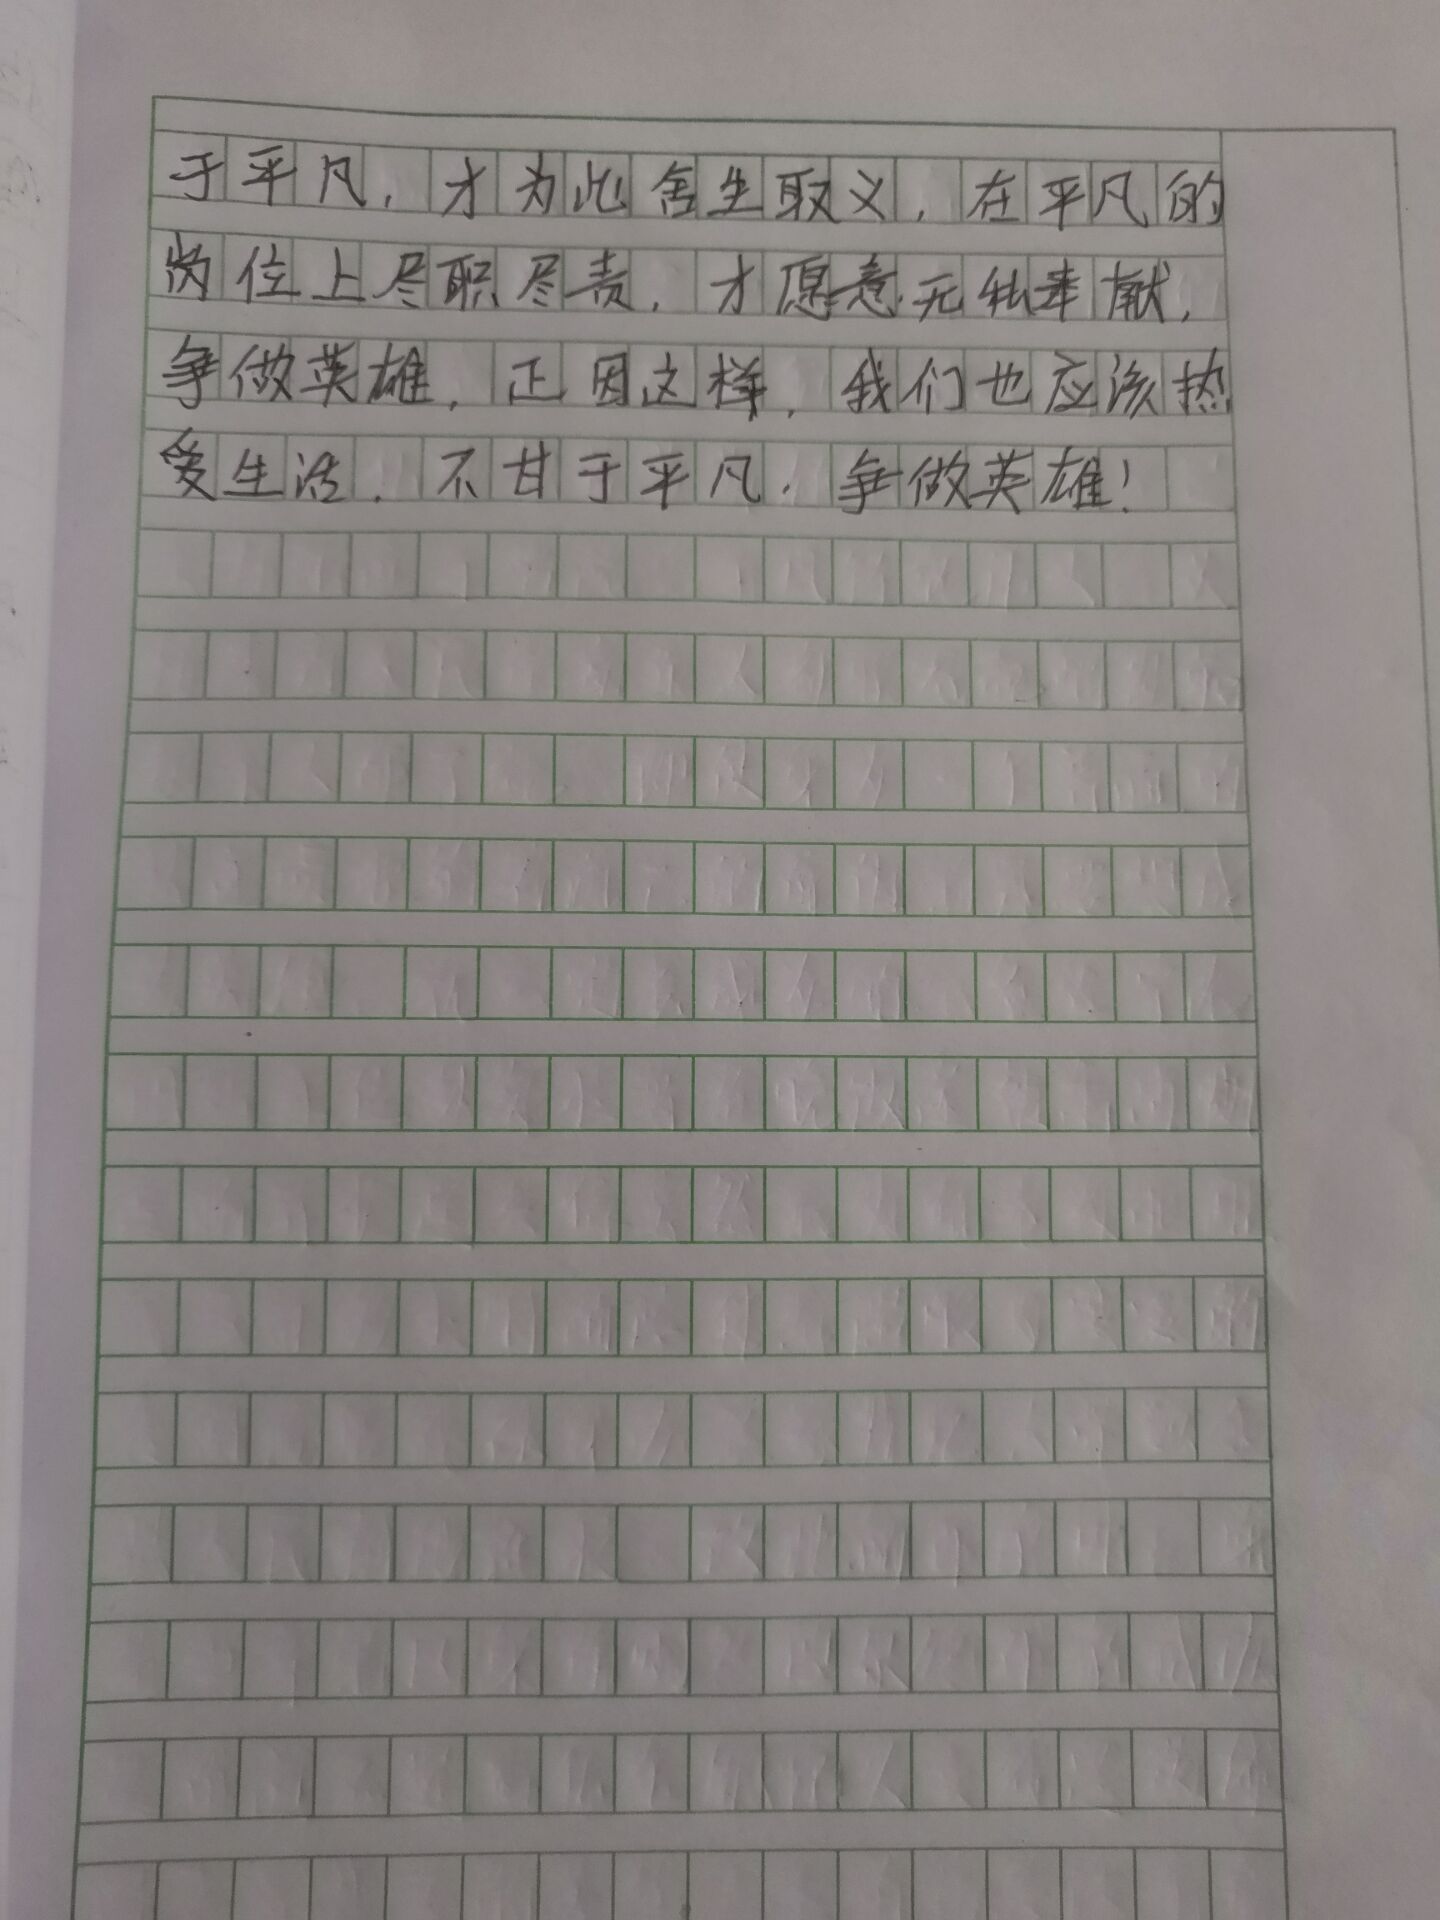 于平凡，才为此舍生取义，在平凡的
岗位上尽职尽责，才愿意无私奉献，
争做英雄，正因这样，我们也应该热
爱生活，不甘于平凡，争做英雄！